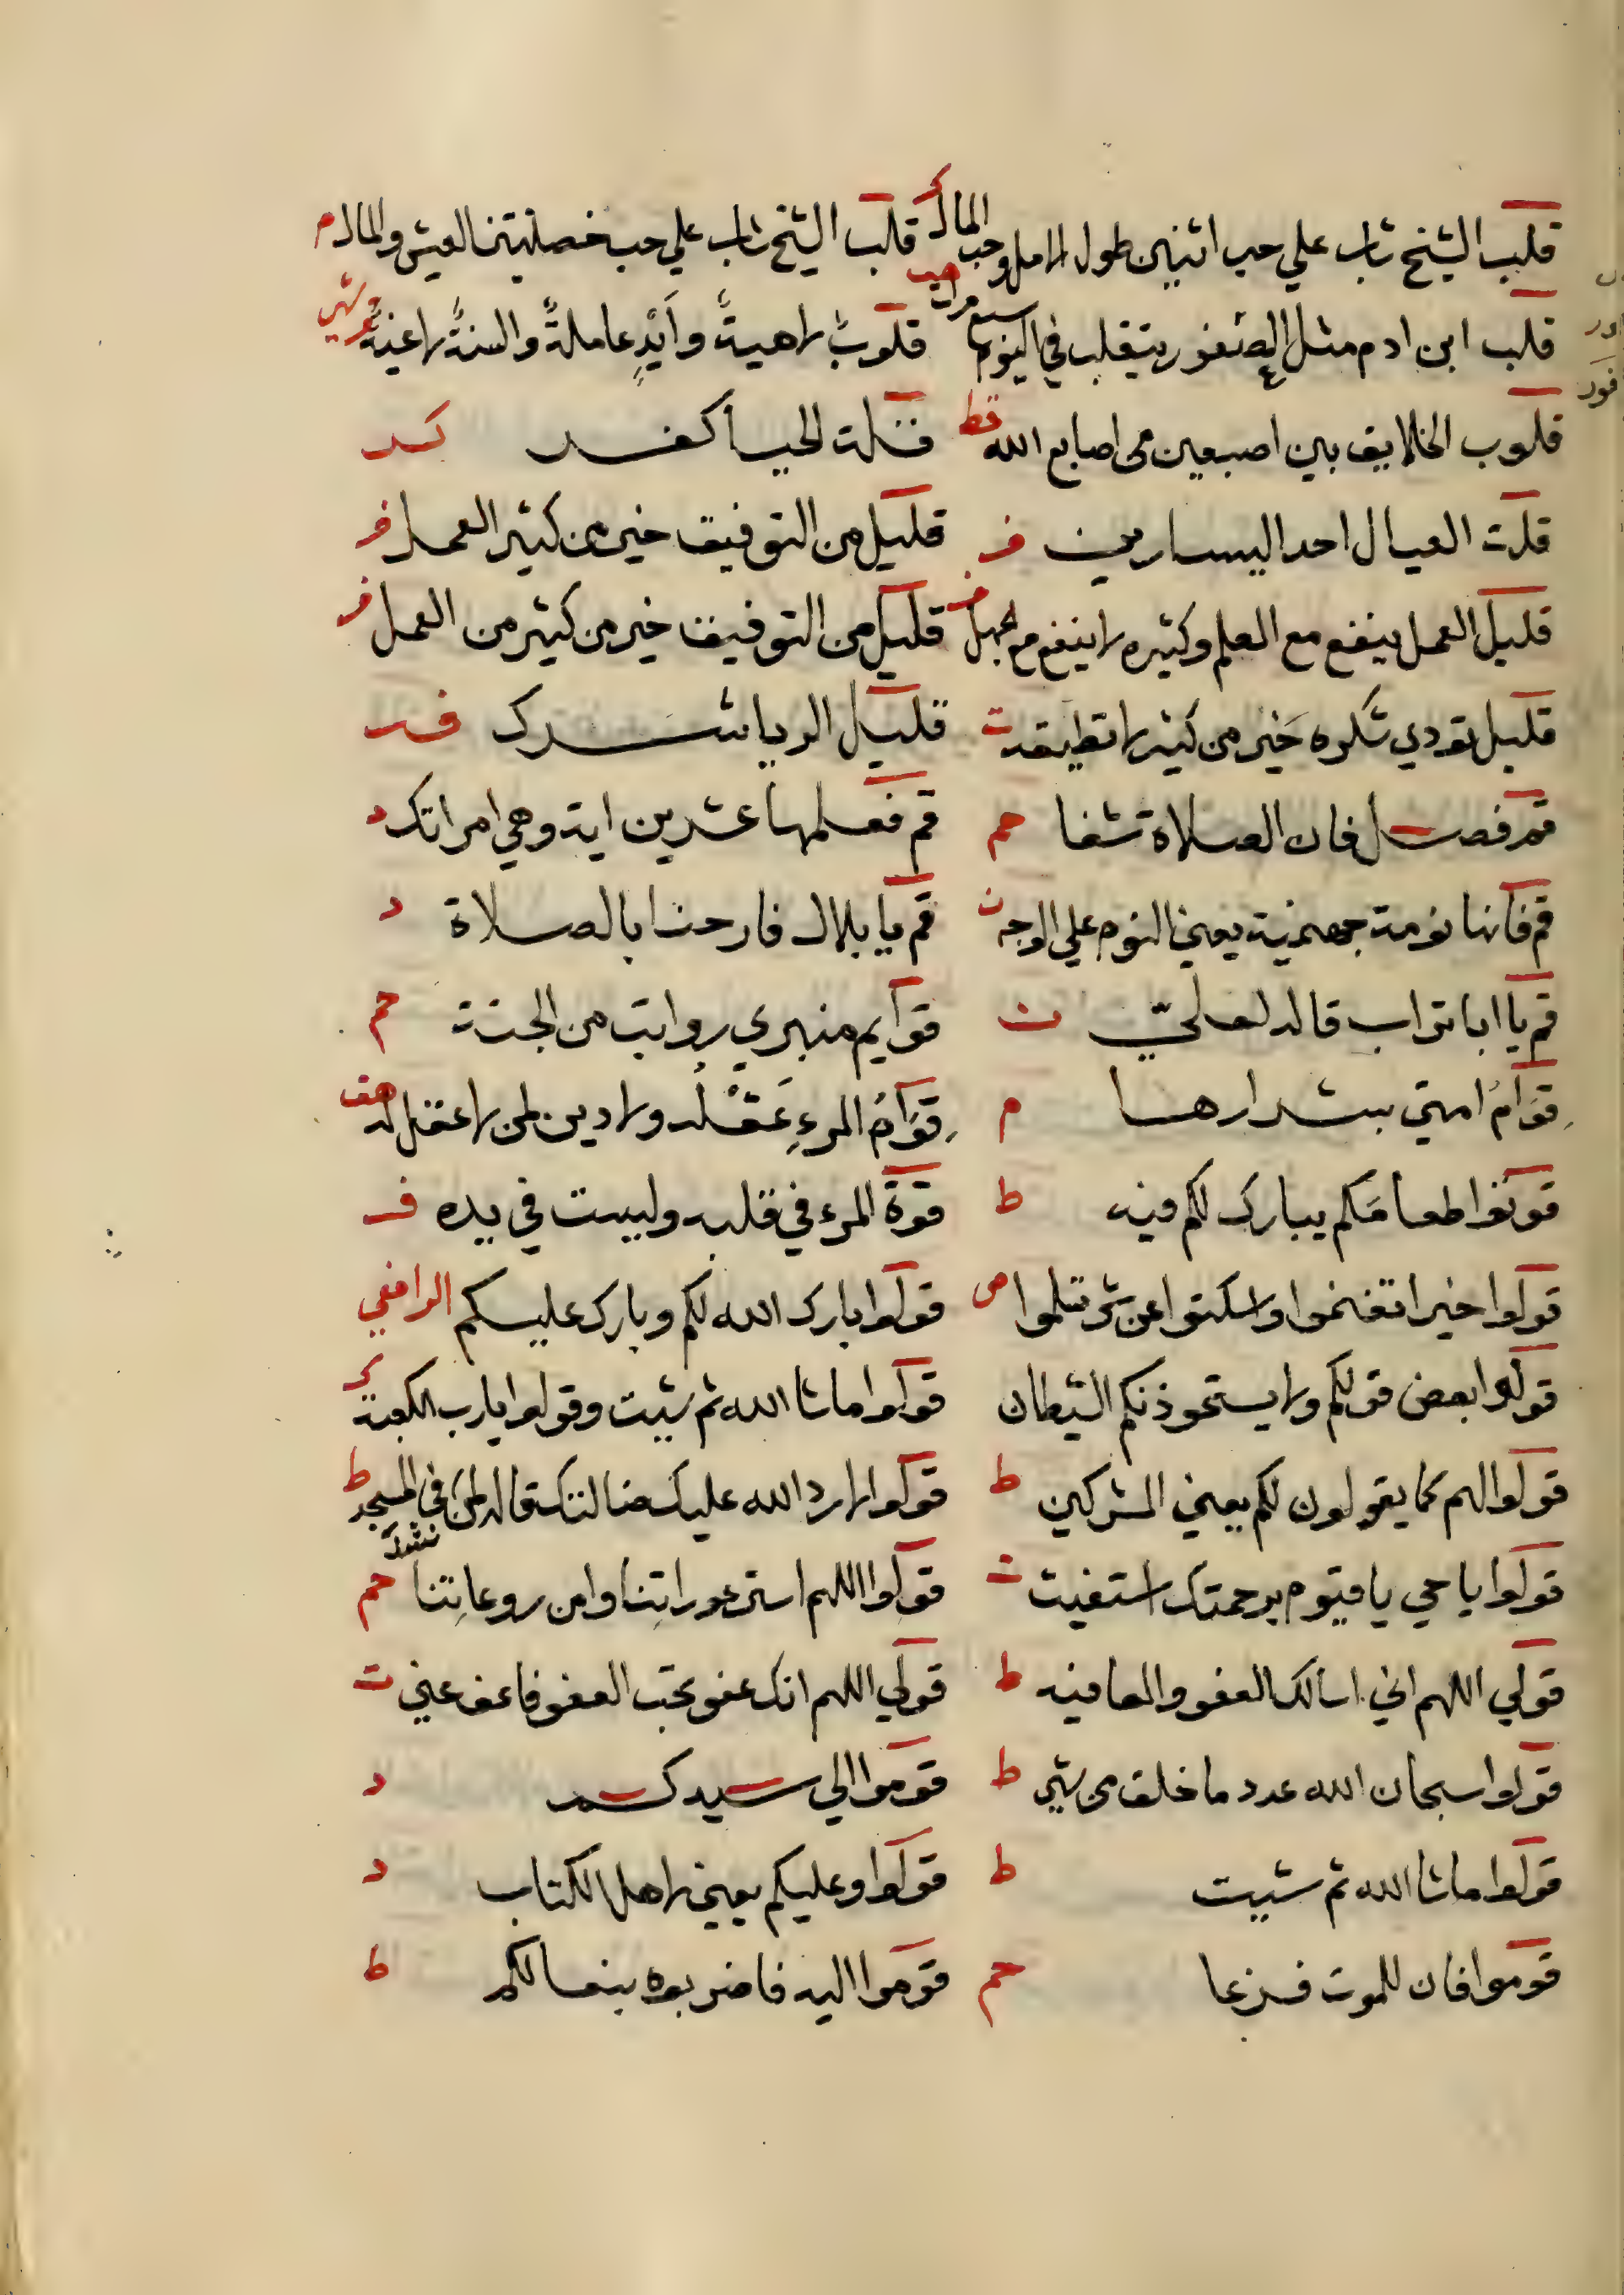 قلب الشيخ شاب علي حب اثنين طول الامل وحب المال ك قلب الشيخ شاب علي حب خصلتين العيش والمال م
قلب ابن ادم مثل العصفور يتقلب في اليوم سبع مرات هب قلوبٌ لاهيةٌ وأيدٍ عاملةٌ والسنةٌ لاغيةٌ
قلوب الخلايق بين اصبعين من اصابع الله قط قلت الحيا كفر كر
قلت العيال احد اليسارين فر قليل من التوفيق خير من كثير العمل فر
قليل العمل ينفع مع العلم وكثيره لا ينفع مع الجهل فر قليل من التوفيق خير من كثير من العمل فر
قليل تودي شكره خير من كثير لا تطيقه ت قليل الريا شرك فر
قم فصل فان الصلاة شفا حم قم فعلمها عشرين اية وهي امراتك د
قم فانها نومة جهنمية يعني النوم علي الوجه ن قم يا بلال فارحنا بالصلاة د
قم يا ابا تراب قاله لعليّ ت قوايم منبري رواتب من الجنة حم
قِوَامُ امتي بشرارها م قِوَامُ المرءِ عَقْلُه ولا دين لمن لا عقل له هق
قوتوا طعامكم يبارك لكم فيه ط قوة المرء في قلبه وليست في يده فر
قولوا خيرا تغنموا واسكتوا عن شر تسلموا ض قولوا بارك الله لكم وبارك عليكم الرافعي
قولوا بعض قولكم ولا يستحوذنكم الشيطان قولوا ما شا الله ثم شيت وقولوا يارب الكعبة ك
قولوا لهم كما يقولون لكم يعني المشركين ط قولوا لا رد الله عليك ضالتك قاله لمن في المسجد ط
نشد
قولوا يا حي يا قيوم برحمتك استغيث ت قولوا اللهم استر عوراتِنا وامن روعاتِنا حم
قولي اللهم اني اسالك العفو والعافيه ط قولي اللهم انك عفو تحب العفو فاعف عني ت
قولوا سبحان الله عدد ما خلق من شي ط قوموا الي سيدكم د
قولوا ما شا الله ثم شيت ط قولوا وعليكم يعني لاهل الكتاب د
قوموا فان للموت فزعا حم قوموا اليه فاضربوه بنعالكم ط